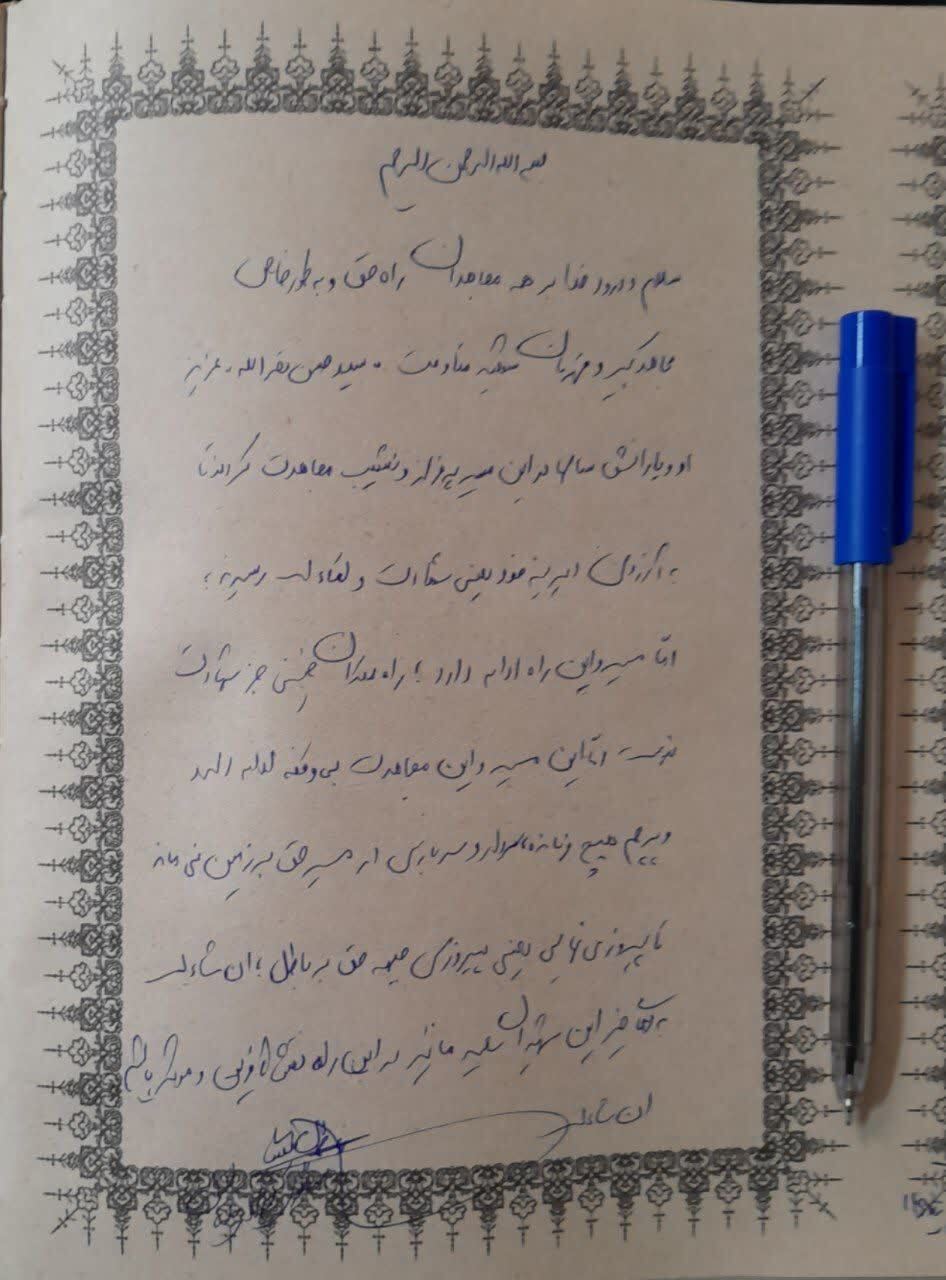 بسم الله الرحمن الرحیم
سلام و درود خدا بر همه مجاهدان راه حق و به طور خاص
مجاهد کبیر و قهرمان شهید مقاومت، سید حسن نصرالله عزیز
او و یارانش سالها در این مسیر پرفراز و نشیب مجاهدت کردند تا
به آرزوی دیرینه خود یعنی شهادت و لقاءالله رسیدند؛
امّا مسیر و این راه ادامه دارد؛ راه خمینی جز شهادت
نیست امّا این مسیر و این مجاهدت بی وقفه ادامه دارد
و پرچم هیچ فرمانده، سردار و سربازی از مسیر حق بر زمین نمی ماند
تا پیروزی نهایی یعنی پیروزی جبهه حق بر باطل؛ ان شاءالله
این شهدا ما نیز در این راه نقش آفرین و موثر باشیم
ان شاءالله